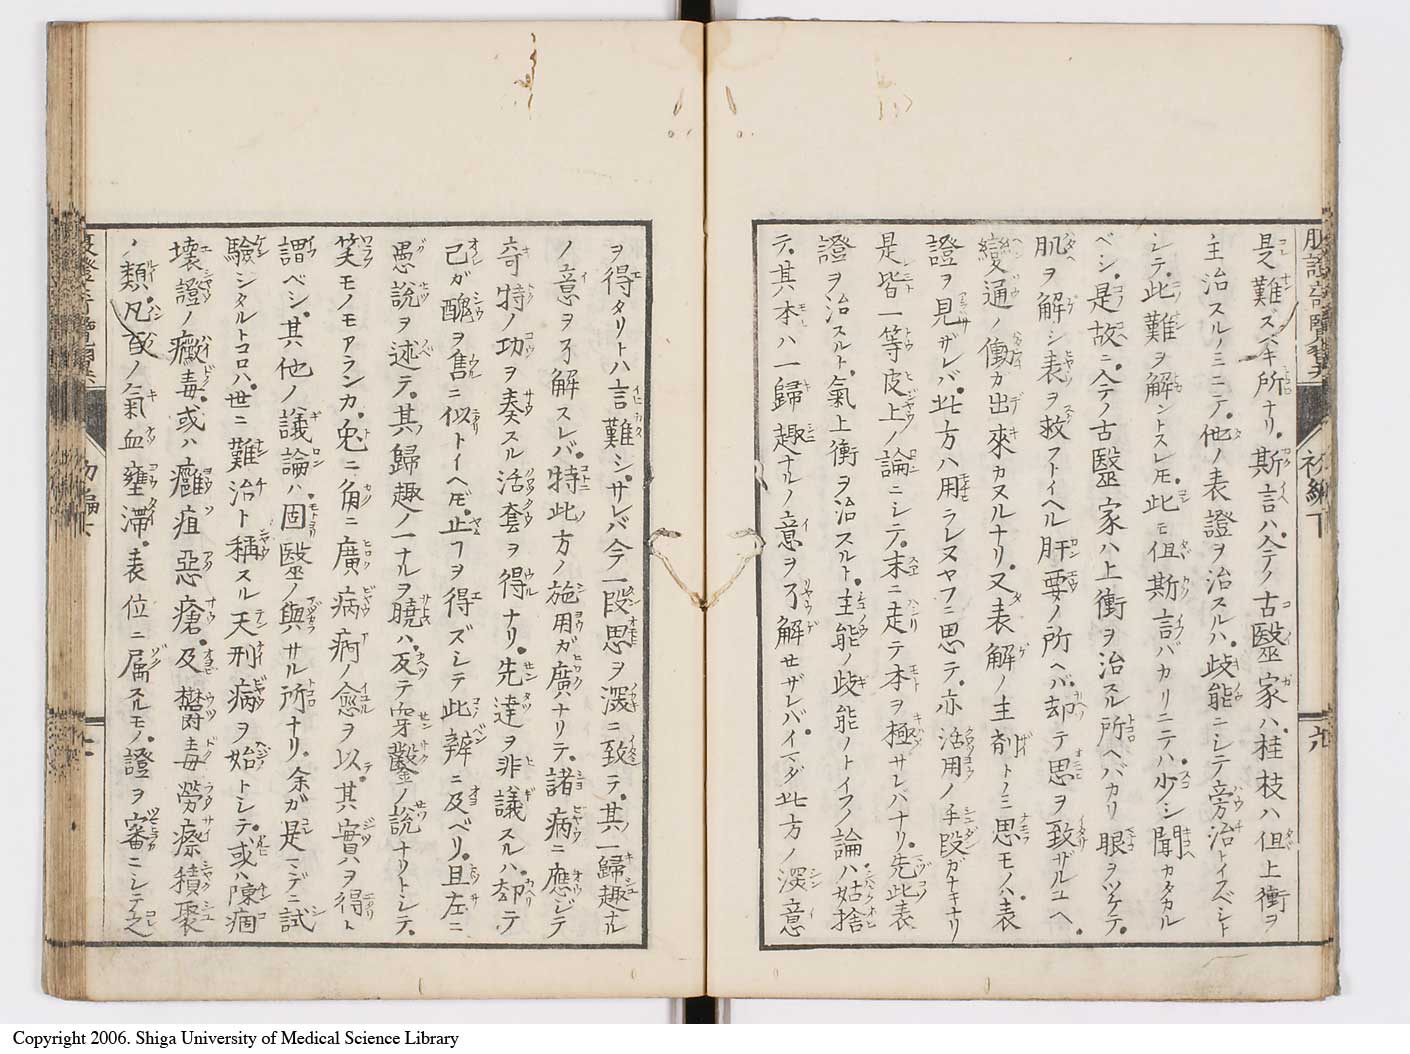 是難ズベキ所ナリ。斯言ハ、今テノ古醫家ハ桂枝ハ但上衝ヲ
主治スルノミニテ。他ノ表證ヲ治スルハ。歧能ニシテ旁治トイフベシト
シテ。此難ヲ解ントスレ𪜈。此モ但斯言バカリニテハ少シ聞カタカル
ベシ。是故ニ。今テノ古醫家ハ上衝ヲ治スル所ヘバカリ眼ヲツケテ。
肌ヲ解シ表ヲ救フトイヘル肝要ノ所ヘバ。却テ思ヲ致ザルユヘ。
變通ノ働カ出來カヌルナリ。又表解ノ主剤トノミ思モノハ。表
證ヲ見ザレバ。此方ハ用ラレヌヤフニ思テ。亦活用ノ手段ガナキナリ
是皆一等皮上ノ論ニシテ。末ニ走テ本ヲ極サレバナリ。先此表
證ヲ治スルト。氣上衝ヲ治スルト。主能ノ歧能ノトイフノ論ハ。姑捨
テ。其本ハ一歸趣ナルノ意ヲ了解セザレバ。イマダ此方ノ深意
ヲ得タリトハ言難シ。サレバ今一段思ヲ深ニ致テ。其一歸趣ナル
ノ意ヲ了解スレバ。特此方ノ施用ガ廣ナリテ。諸病ニ應ジテ
奇特ノ功ヲ奏スル活套ヲ得ルナリ。先達ヲ非議スルハ。却テ
己ガ醜ヲ售ニ似トイヘ𪜈。止フヲ得ズシテ此辨ニ及ベリ。且左ニ
愚説ヲ述テ。其歸趣ノ一ナルヲ曉ハ。反テ穿鑿ノ説ナリトシテ。
笑モノモアランカ。兎ニ角ニ廣病痾ノ愈ヲ以テ。其實ハヲ得ト
謂ベシ。其他ノ議論ハ。固醫ノ與サル所ナリ。余ガ是マデニ試
驗シタルトコロハ。世ニ難治ト稱スル天刑病ヲ始トシテ。或ハ陳痼
壞證ノ黴毒。或ハ癰疽惡瘡。及欝毒勞瘵積聚
ノ類。凡百ノ氣血壅滯。表位ニ属スルモノ。證ヲ審ニシテ之
初編下
Copyright 2006. Shiga University of Medical Science Library